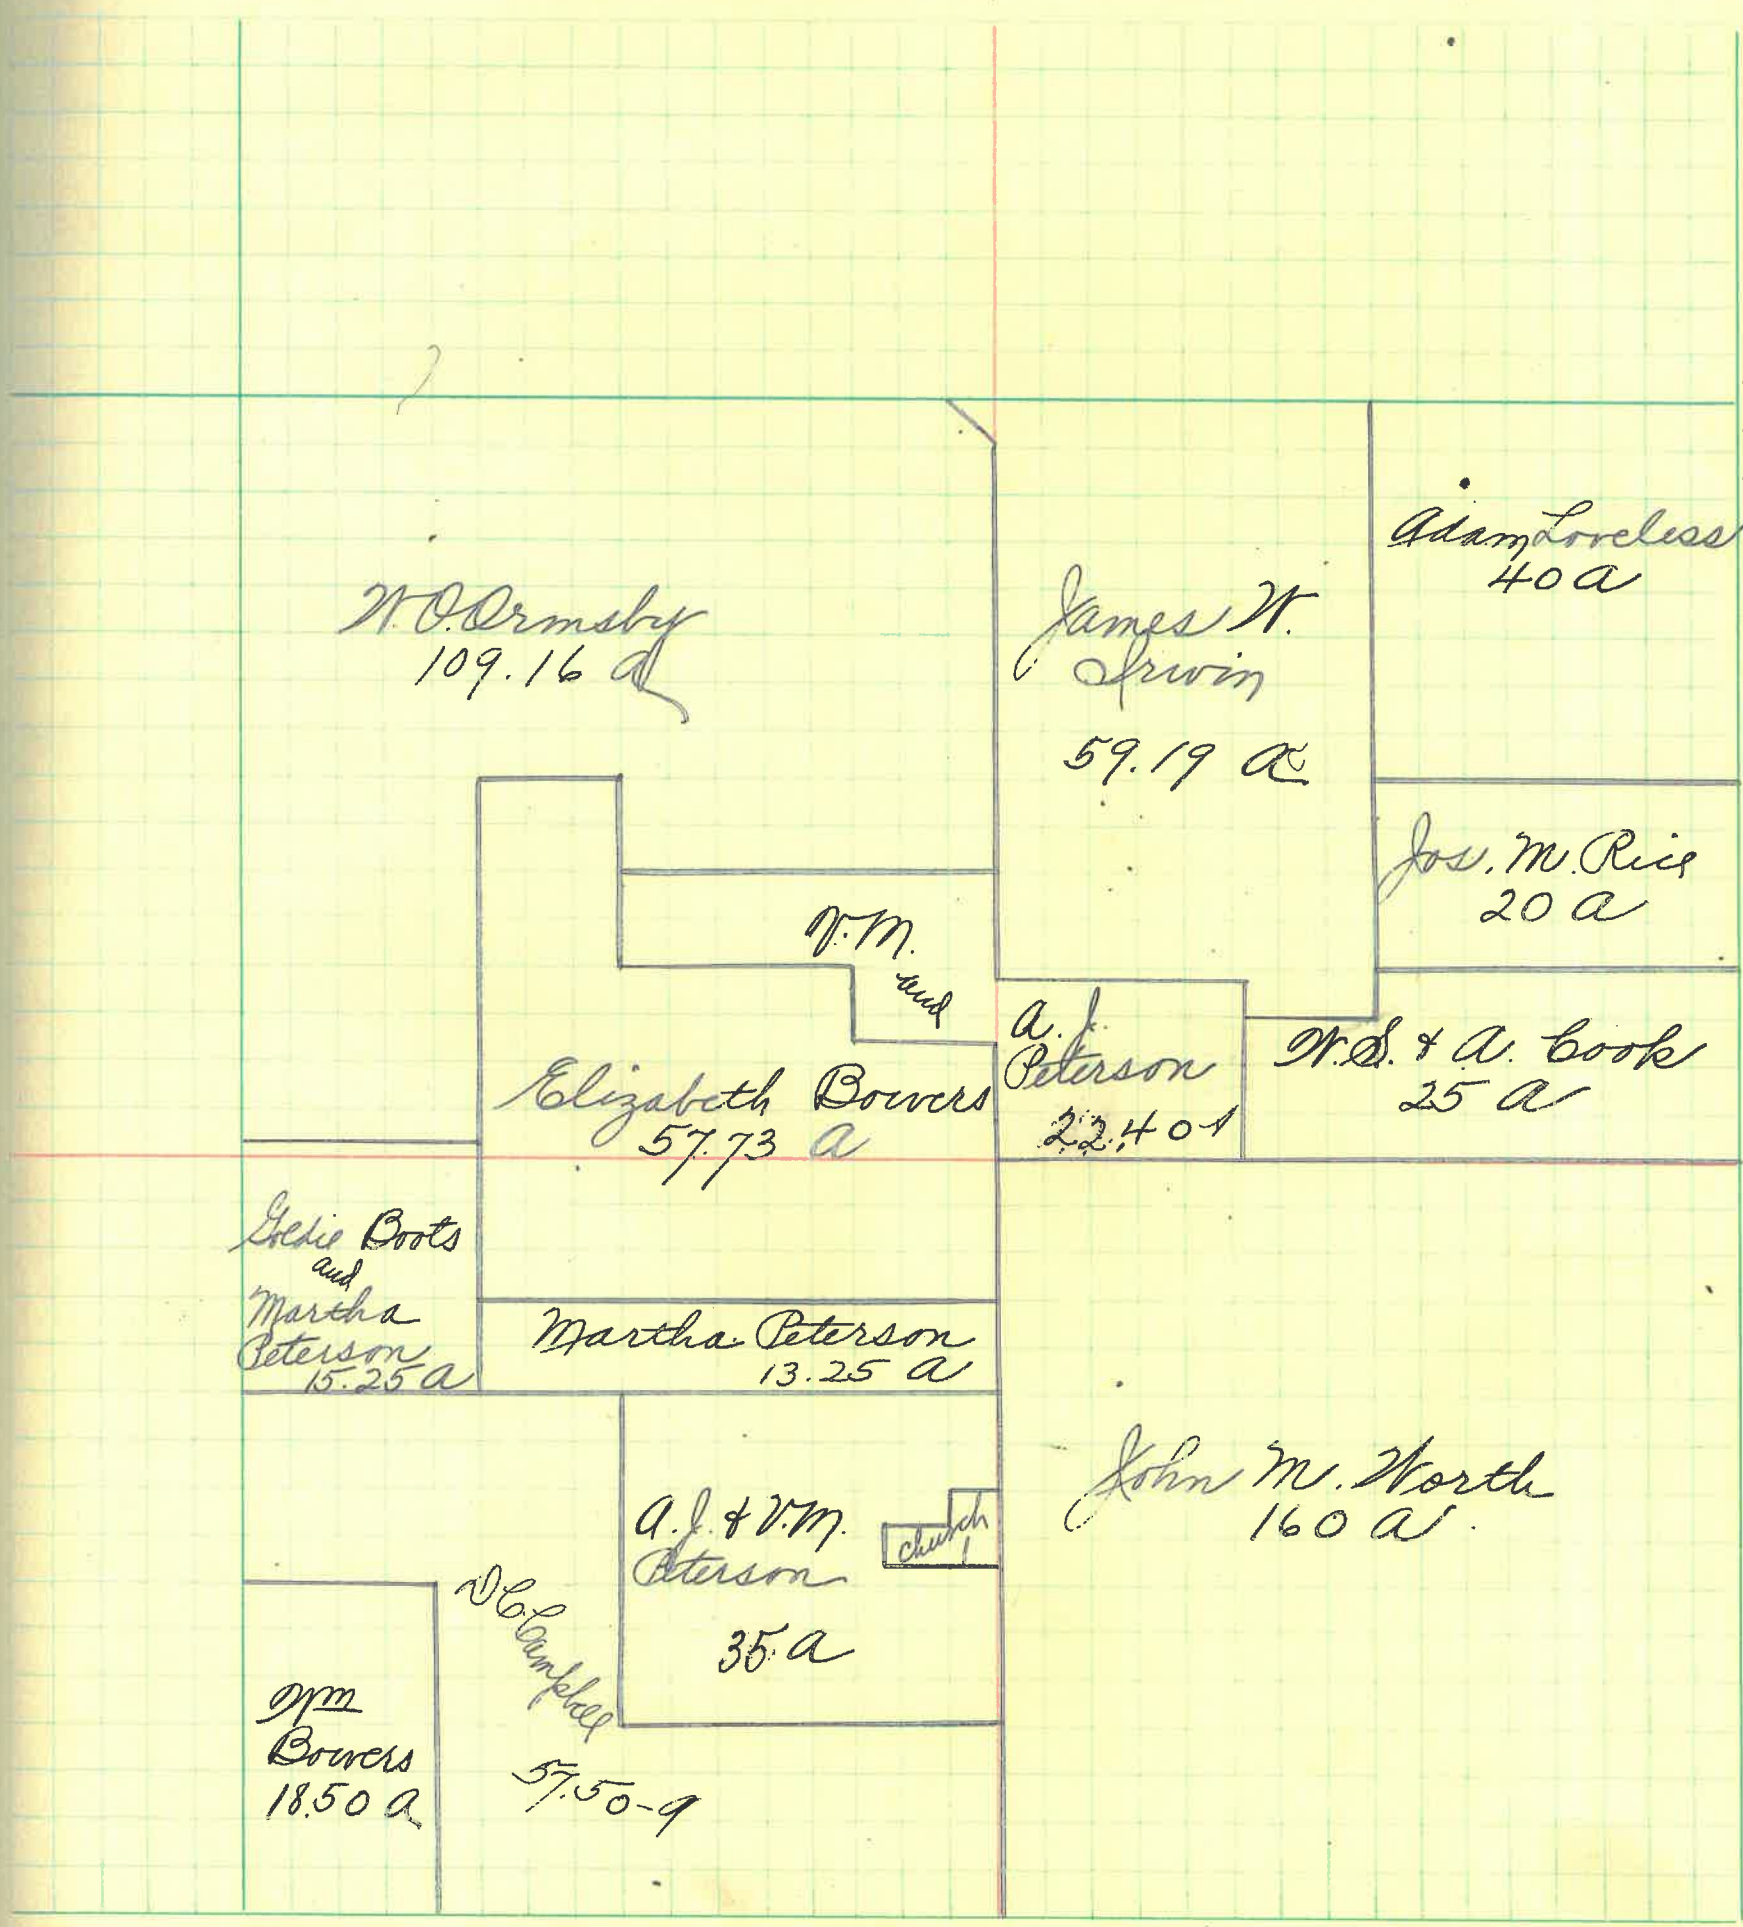 W. O. Ormsby
109.16 a
James W.
Irwin
59.19 a
Adam Loveless
40 a
Jos. M. Rice
20 a
V. M.
and
A. J.
Peterson
22.40 A
W. S. & A. Cook
25 a
Elizabeth Bowers
57.73 a
Goldie Boots
and
Martha
Peterson
15.25 a
Martha Peterson
13.25 a
A. J. & V. M.
Peterson
35 a
church
1
John M. Worth
160 a
Campbell
57.50-a
Wm
Bowers
18.50 a